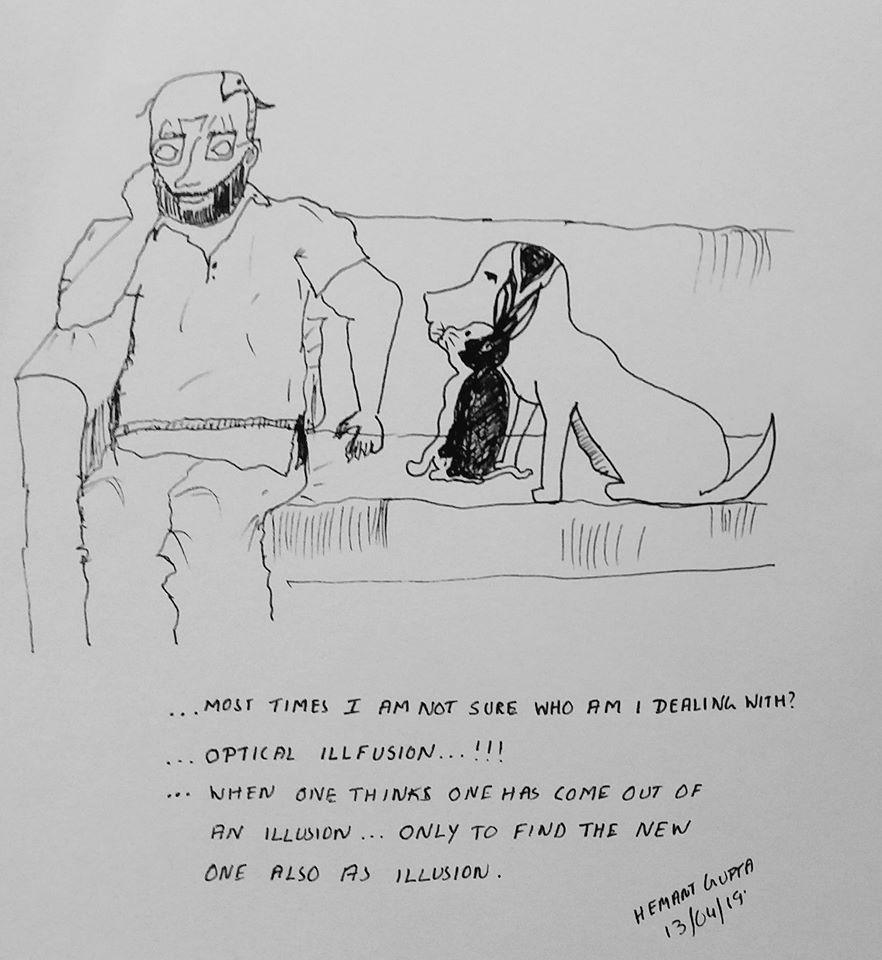 ...MOST TIMES I AM NOT SURE WHO AM I DEALING WITH?
... OPTICAL ILLFUSION...!!!
... WHEN ONE THINKS ONE HAS COME OUT OF
AN ILLUSION... ONLY TO FIND THE NEW
ONE ALSO AS ILLUSION.
HEMANT GUPTA
13/04/19.